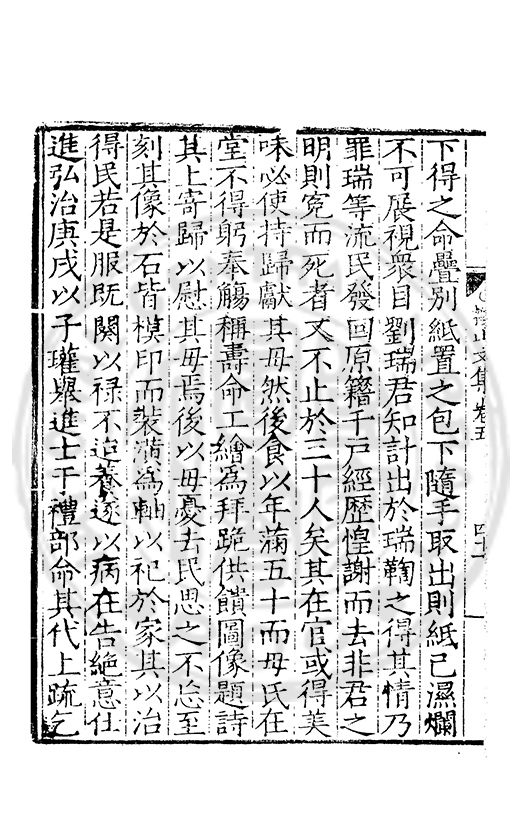 文集卷五
下得之命疊別紙置之包下隨手取出則紙已濕爛
不可展視衆目劉瑞君知計出於瑞鞫之得其情乃
罪瑞等流民發回原籍千戶經歷惶謝而去非君之
明則寃而死者又不止於三十人矣其在官或得美
味必使持歸獻其母然後食以年滿五十而母氏在
堂不得躬奉觴稱壽命工繪爲拜跪供饋圖像題詩
其上寄歸以慰其母焉後以母憂去民思之不忘至
刻其像於石皆模印而裝潢爲軸以祀於家其以治
得民若是服既闋以禄不逮養遂以病在告絶意仕
進弘治庚戌以子瓘舉進士于禮部命其代上疏乞